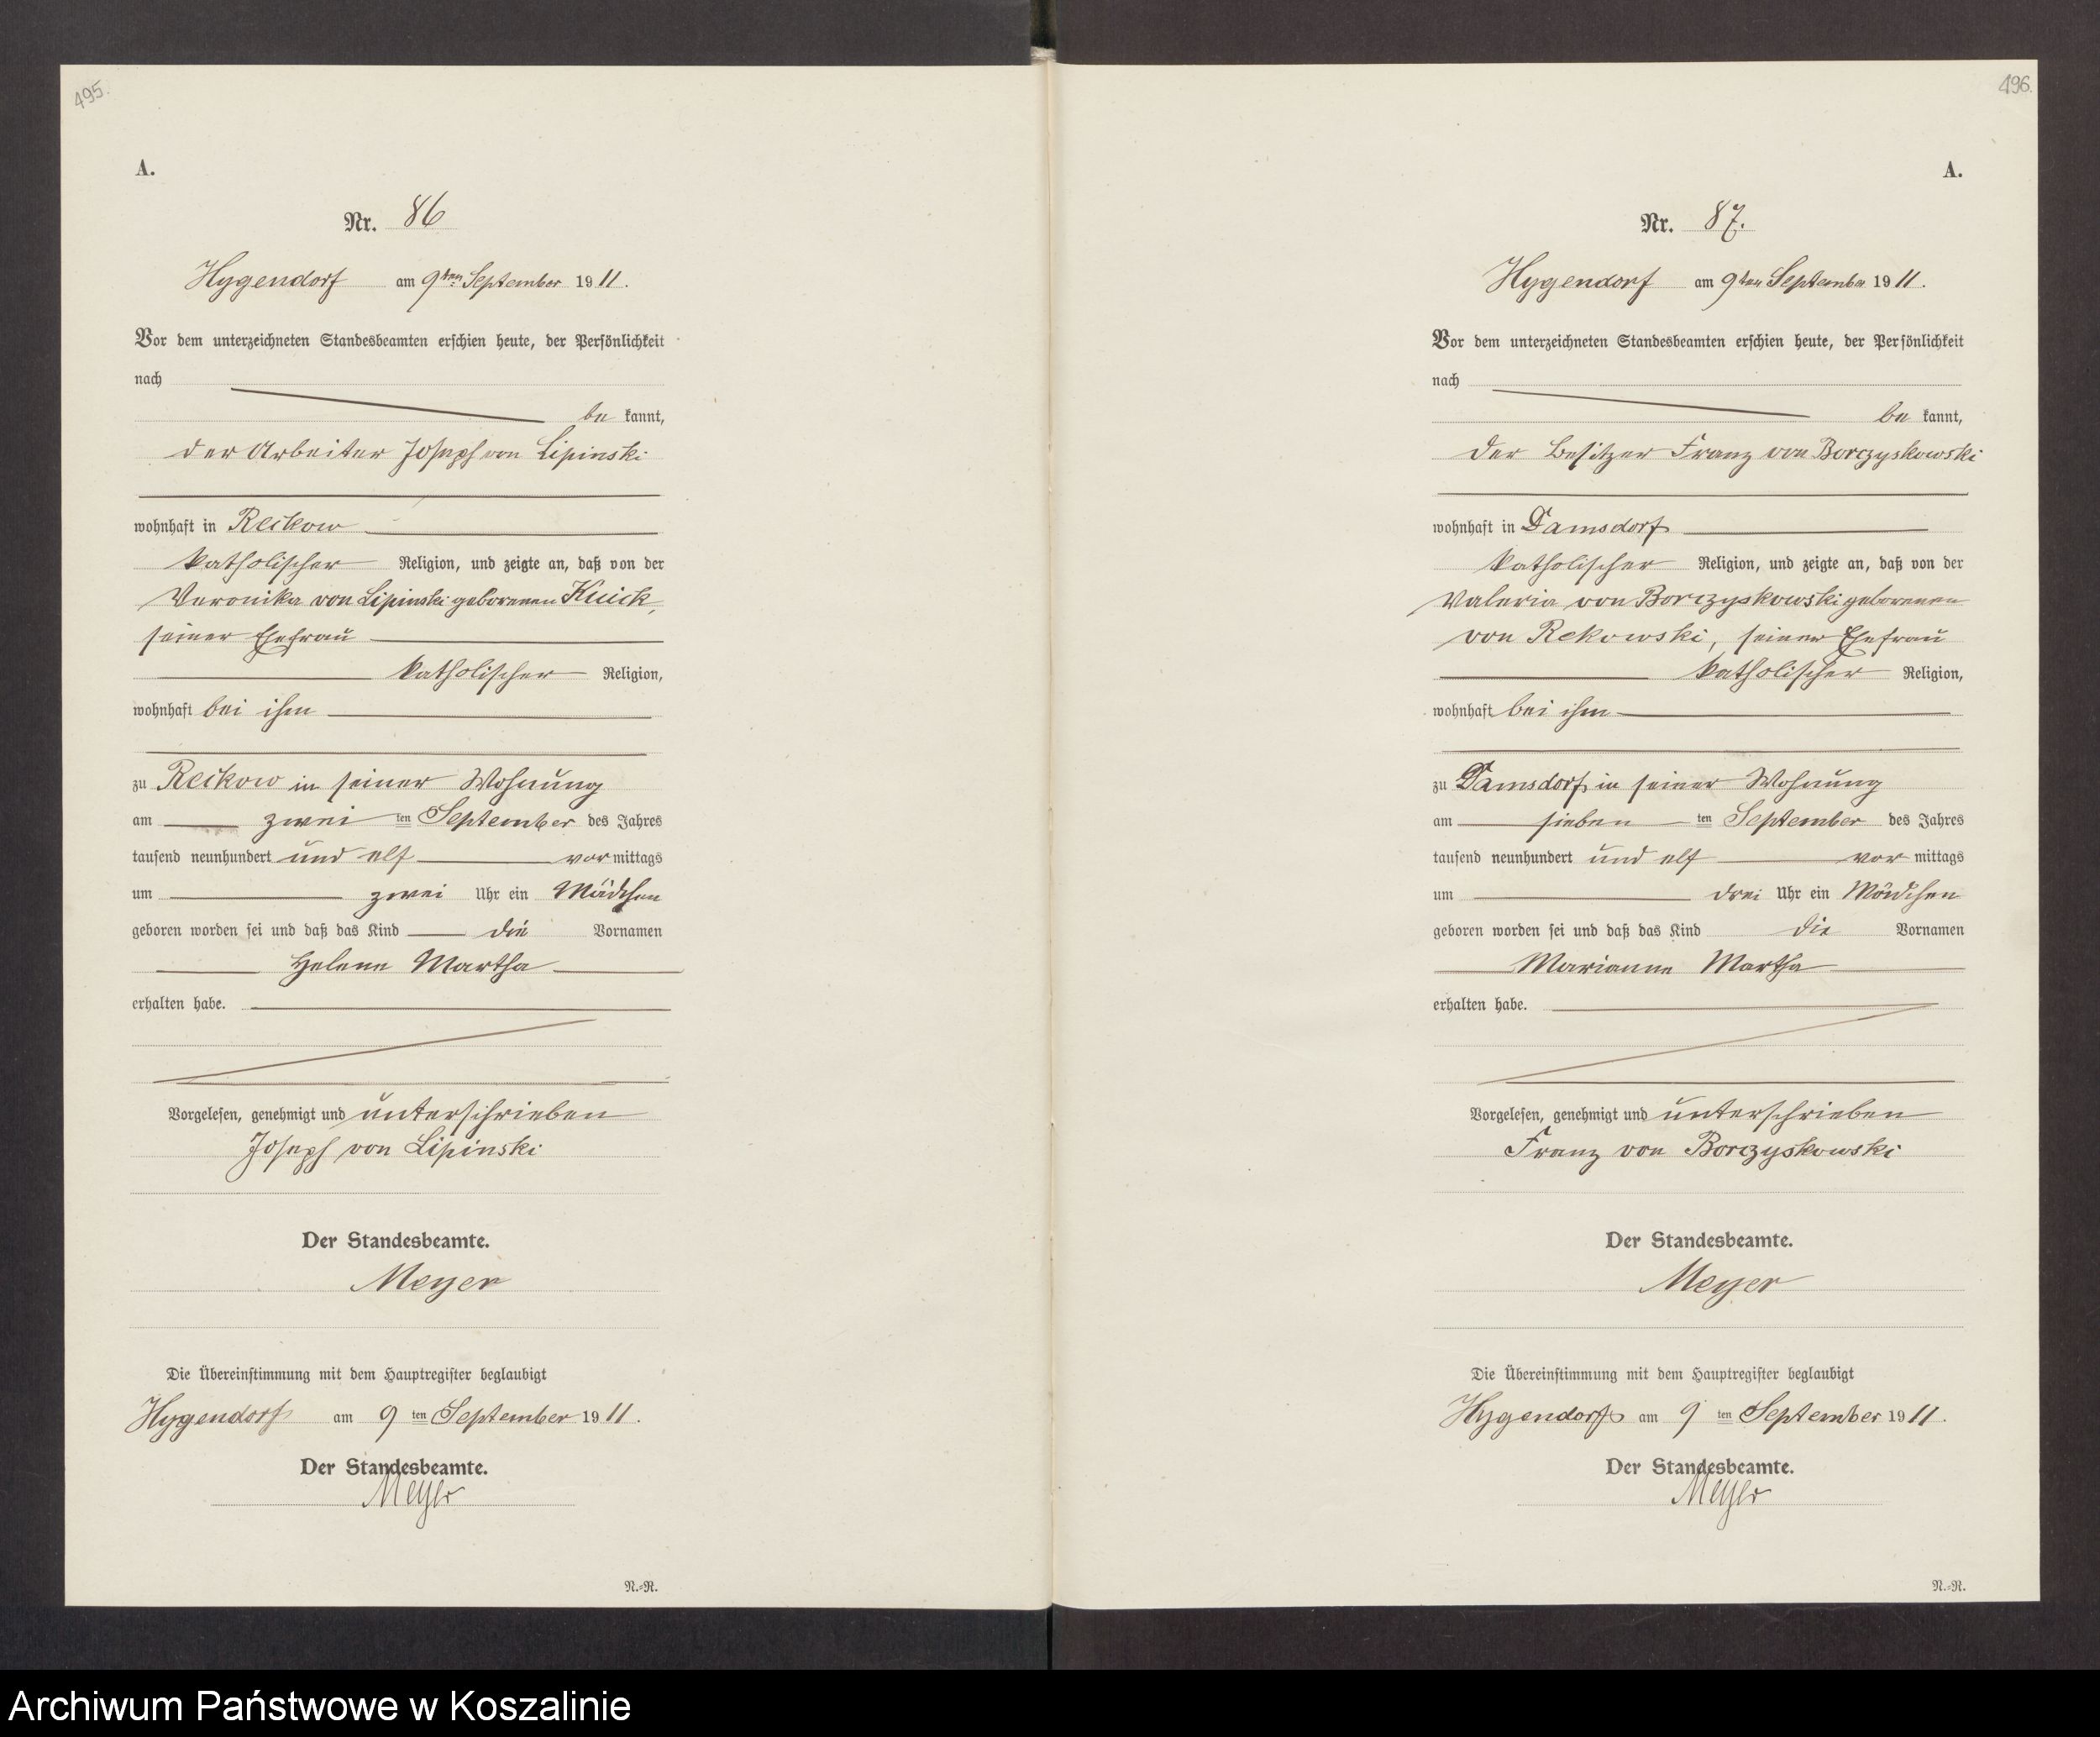 495.
A.
Nr. 86
Hygendorf am 9ten September 1911.
Vor dem unterzeichneten Standesbeamten erschien heute, der Persönlichkeit
nach
be kannt,
der Arbeiter Joseph von Lipinski
wohnhaft in Reckow
katholischer Religion, und zeigte an, daß von der
Veronika von Lipinski geborenen
seiner Ehefrau
katholischer Religion,
wohnhaft bei ihm
zu Reckow in seiner Wohnung
am zwei ten September des Jahres
tausend neunhundert und elf vor mittags
um zwei Uhr ein Mädchen
geboren worden sei und daß das Kind die Vornamen
Helene Martha
erhalten habe.
Vorgelesen, genehmigt und unterschrieben
Joseph von Lipinski
Der Standesbeamte.
Meyer
Die Übereinstimmung mit dem Hauptregister beglaubigt
Hygendorf am 9 ten September 1911.
Der Standesbeamte.
Meyer
N.=R.
496.
A.
Nr. 87.
Hygendorf am 9ten September 1911.
Vor dem unterzeichneten Standesbeamten erschien heute, der Persönlichkeit
nach
be kannt,
der Besitzer Franz von Borczyskowski
wohnhaft in Damsdorf
katholischer Religion, und zeigte an, daß von der
Valeria von Borczyskowski geborenen
von Rekowski, seiner Ehefrau
katholischer Religion,
wohnhaft bei ihm
zu Damsdorf in seiner Wohnung
am sieben ten September des Jahres
tausend neunhundert und elf vor mittags
um drei Uhr ein Mädchen
geboren worden sei und daß das Kind die Vornamen
Marianne Martha
erhalten habe.
Vorgelesen, genehmigt und unterschrieben
Franz von Borczyskowski
Der Standesbeamte.
Meyer
Die Übereinstimmung mit dem Hauptregister beglaubigt
Hygendorf am 9 ten September 1911.
Der Standesbeamte.
Meyer
N.=R.
Archiwum Państwowe w Koszalinie